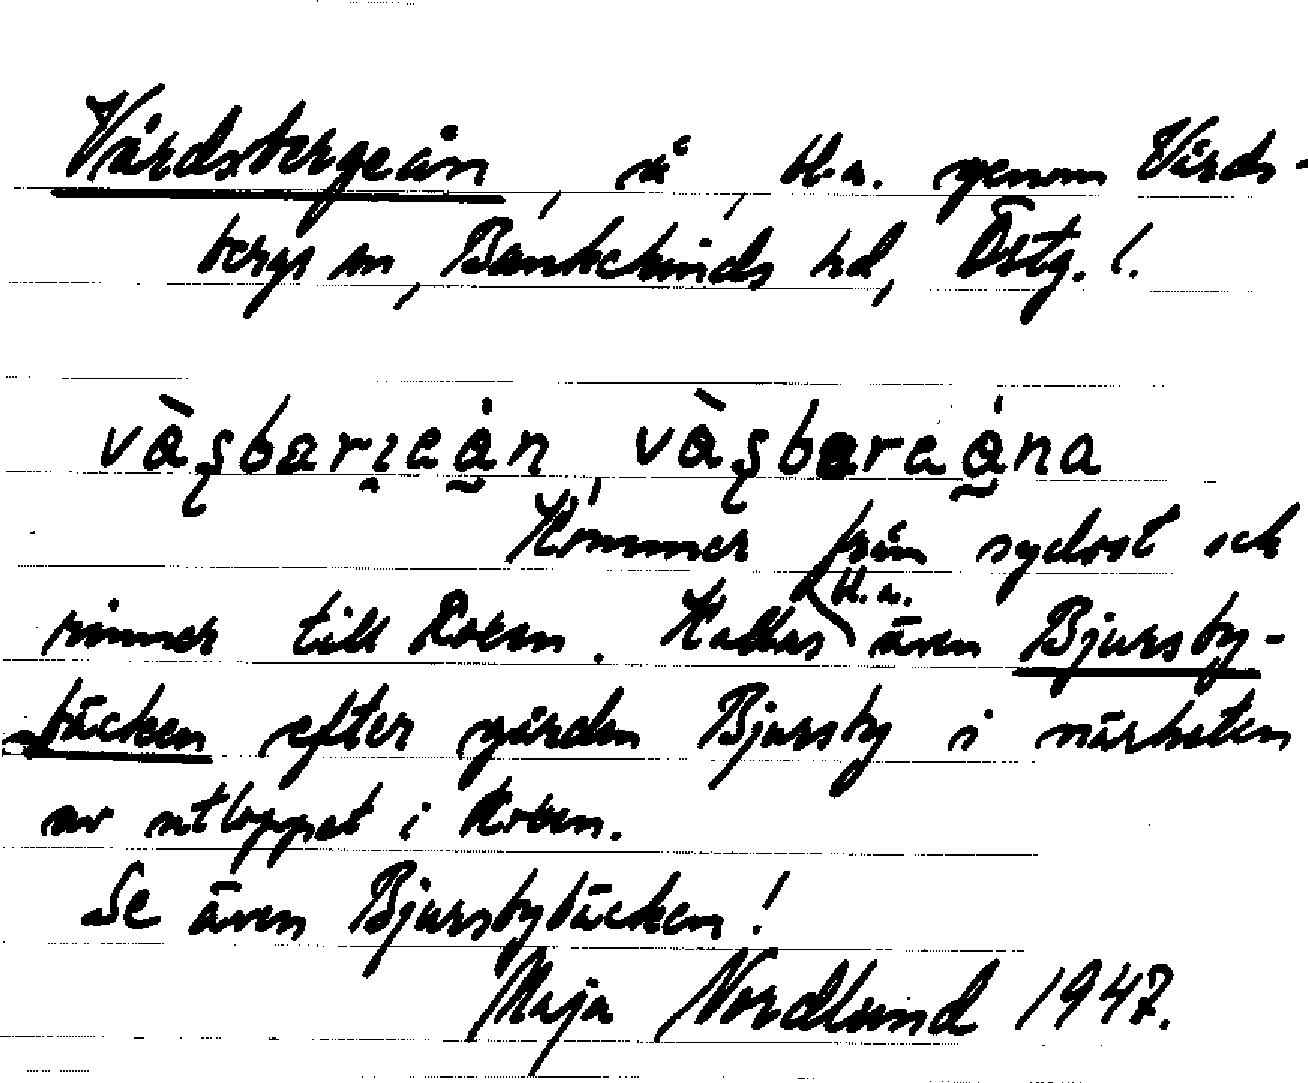 Vårdsbergeån, å, bl.a. genom Vårds-
bergs sn, Bankekinds hd, Östg. l.
Kommer från sydost och
rinner till Roxen. Kallas bl.a. även Bjursby-
bäcken efter gården Bjursby i närheten
av utloppet i Roxen.
Se även Bjursbybäcken!
Maja Nordlund 1947.